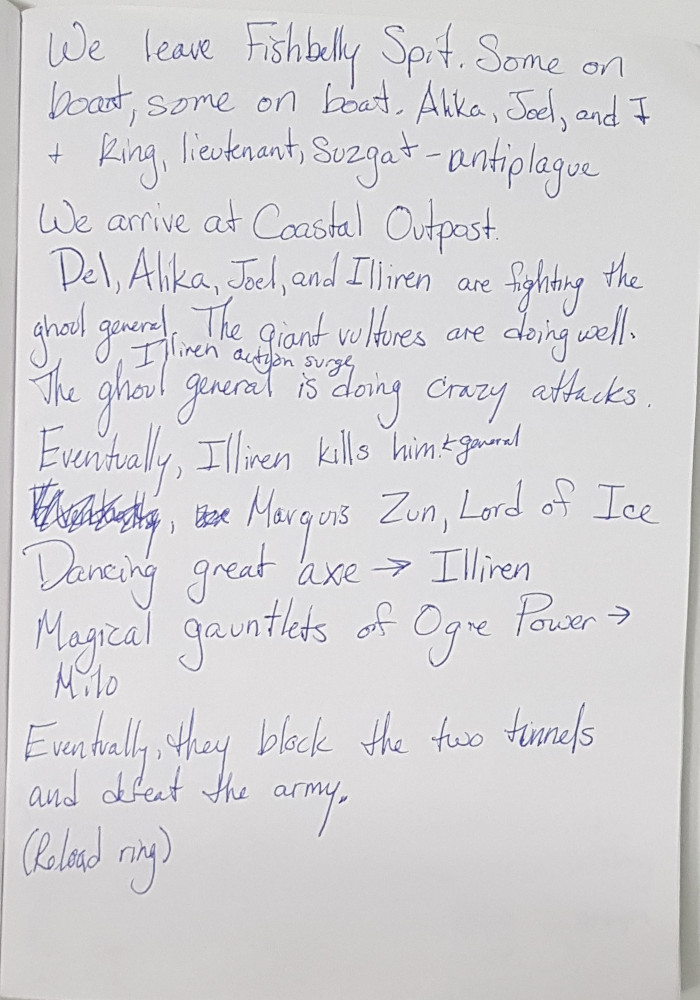 We leave Fishbelly Spit. Some on
boat, some on boat. Alika, Joel, and I
+ King, lieutenant, Suzgat - antiplague
We arrive at Coastal Outpost.
Del, Alika, Joel, and Illiren are fighting the
ghoul general. The giant vultures are doing well.
Illiren action surge
The ghoul general is doing crazy attacks.
Eventually, Illiren kills him. ← general
, Marquis Zun, Lord of Ice
Dancing great axe → Illiren
Magical gauntlets of Ogre Power →
Milo
Eventually, they block the two tunnels
and defeat the army.
(Reload ring)